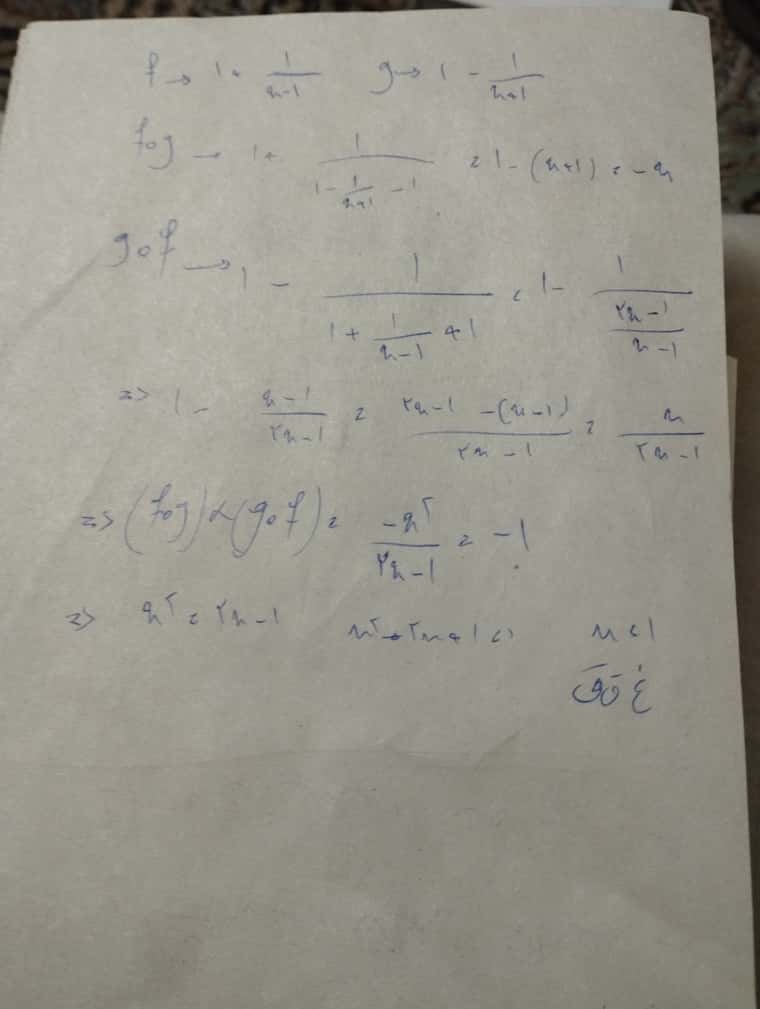 f → 1 + 1/(x-1)   g → 1 - 1/(x+1)
fog → 1 + 1/(1 - 1/(x+1) - 1) = 1 - (x+1) = -x
gof → 1 - 1/(1 + 1/(x-1) + 1) = 1 - 1/((۲x-1)/(x-1))
=> 1 - (x-1)/(۲x-1) = (۲x-1 -(x-1))/(۲x-1) = x/(۲x-1)
=> (fog) × (gof) = -x^۲/(۲x-1) = -1
=> x^۲ = ۲x-1   x^۲-۲x+1=0   x=1